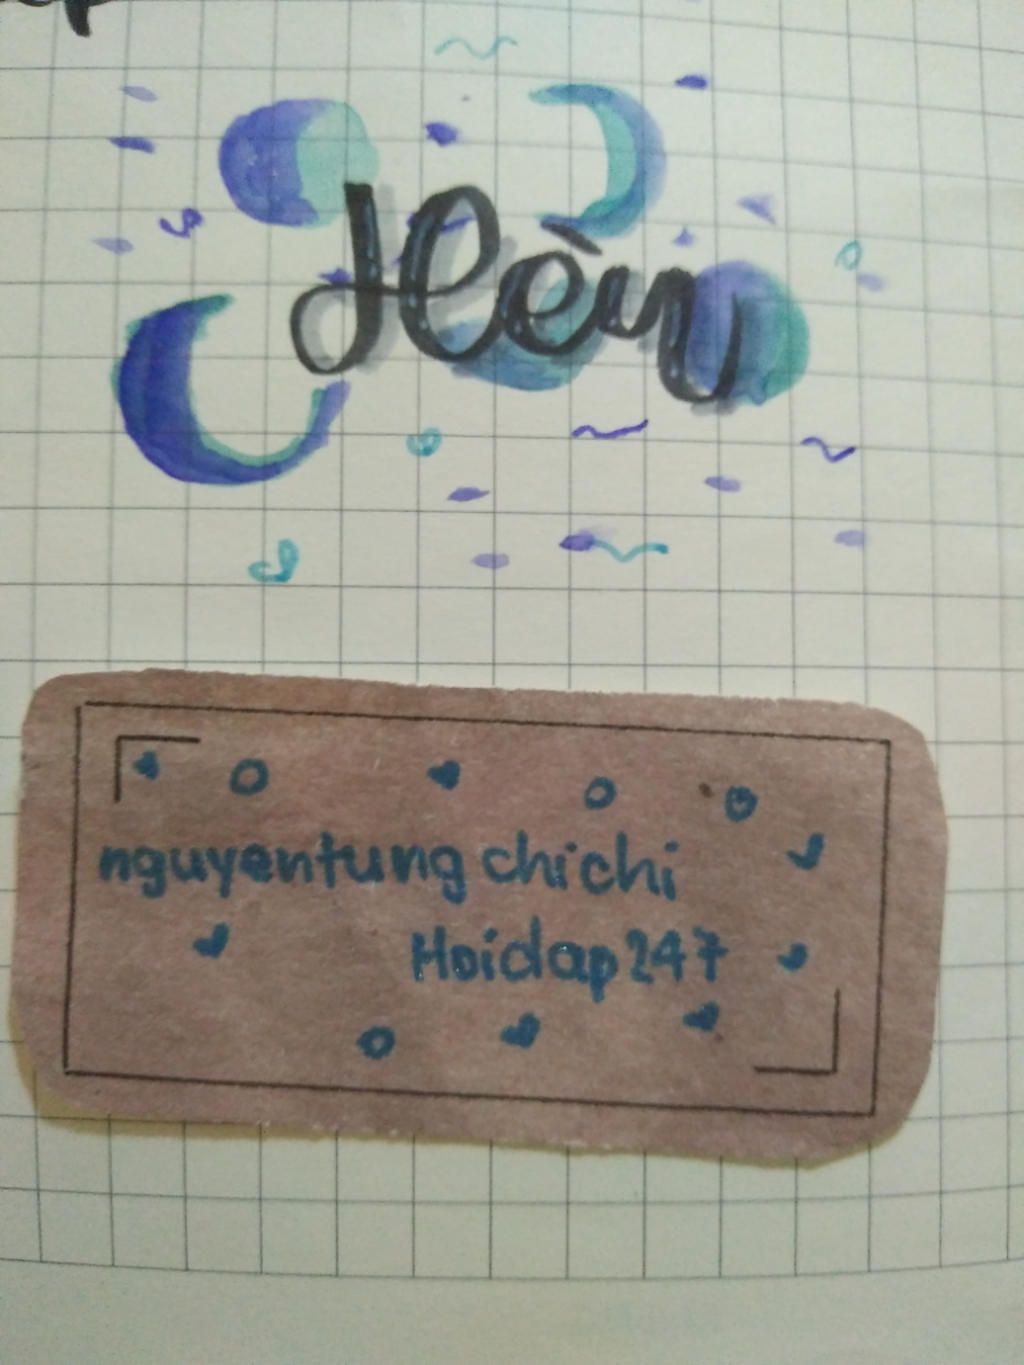 Hèn
nguyentung chichi
Hoidap247